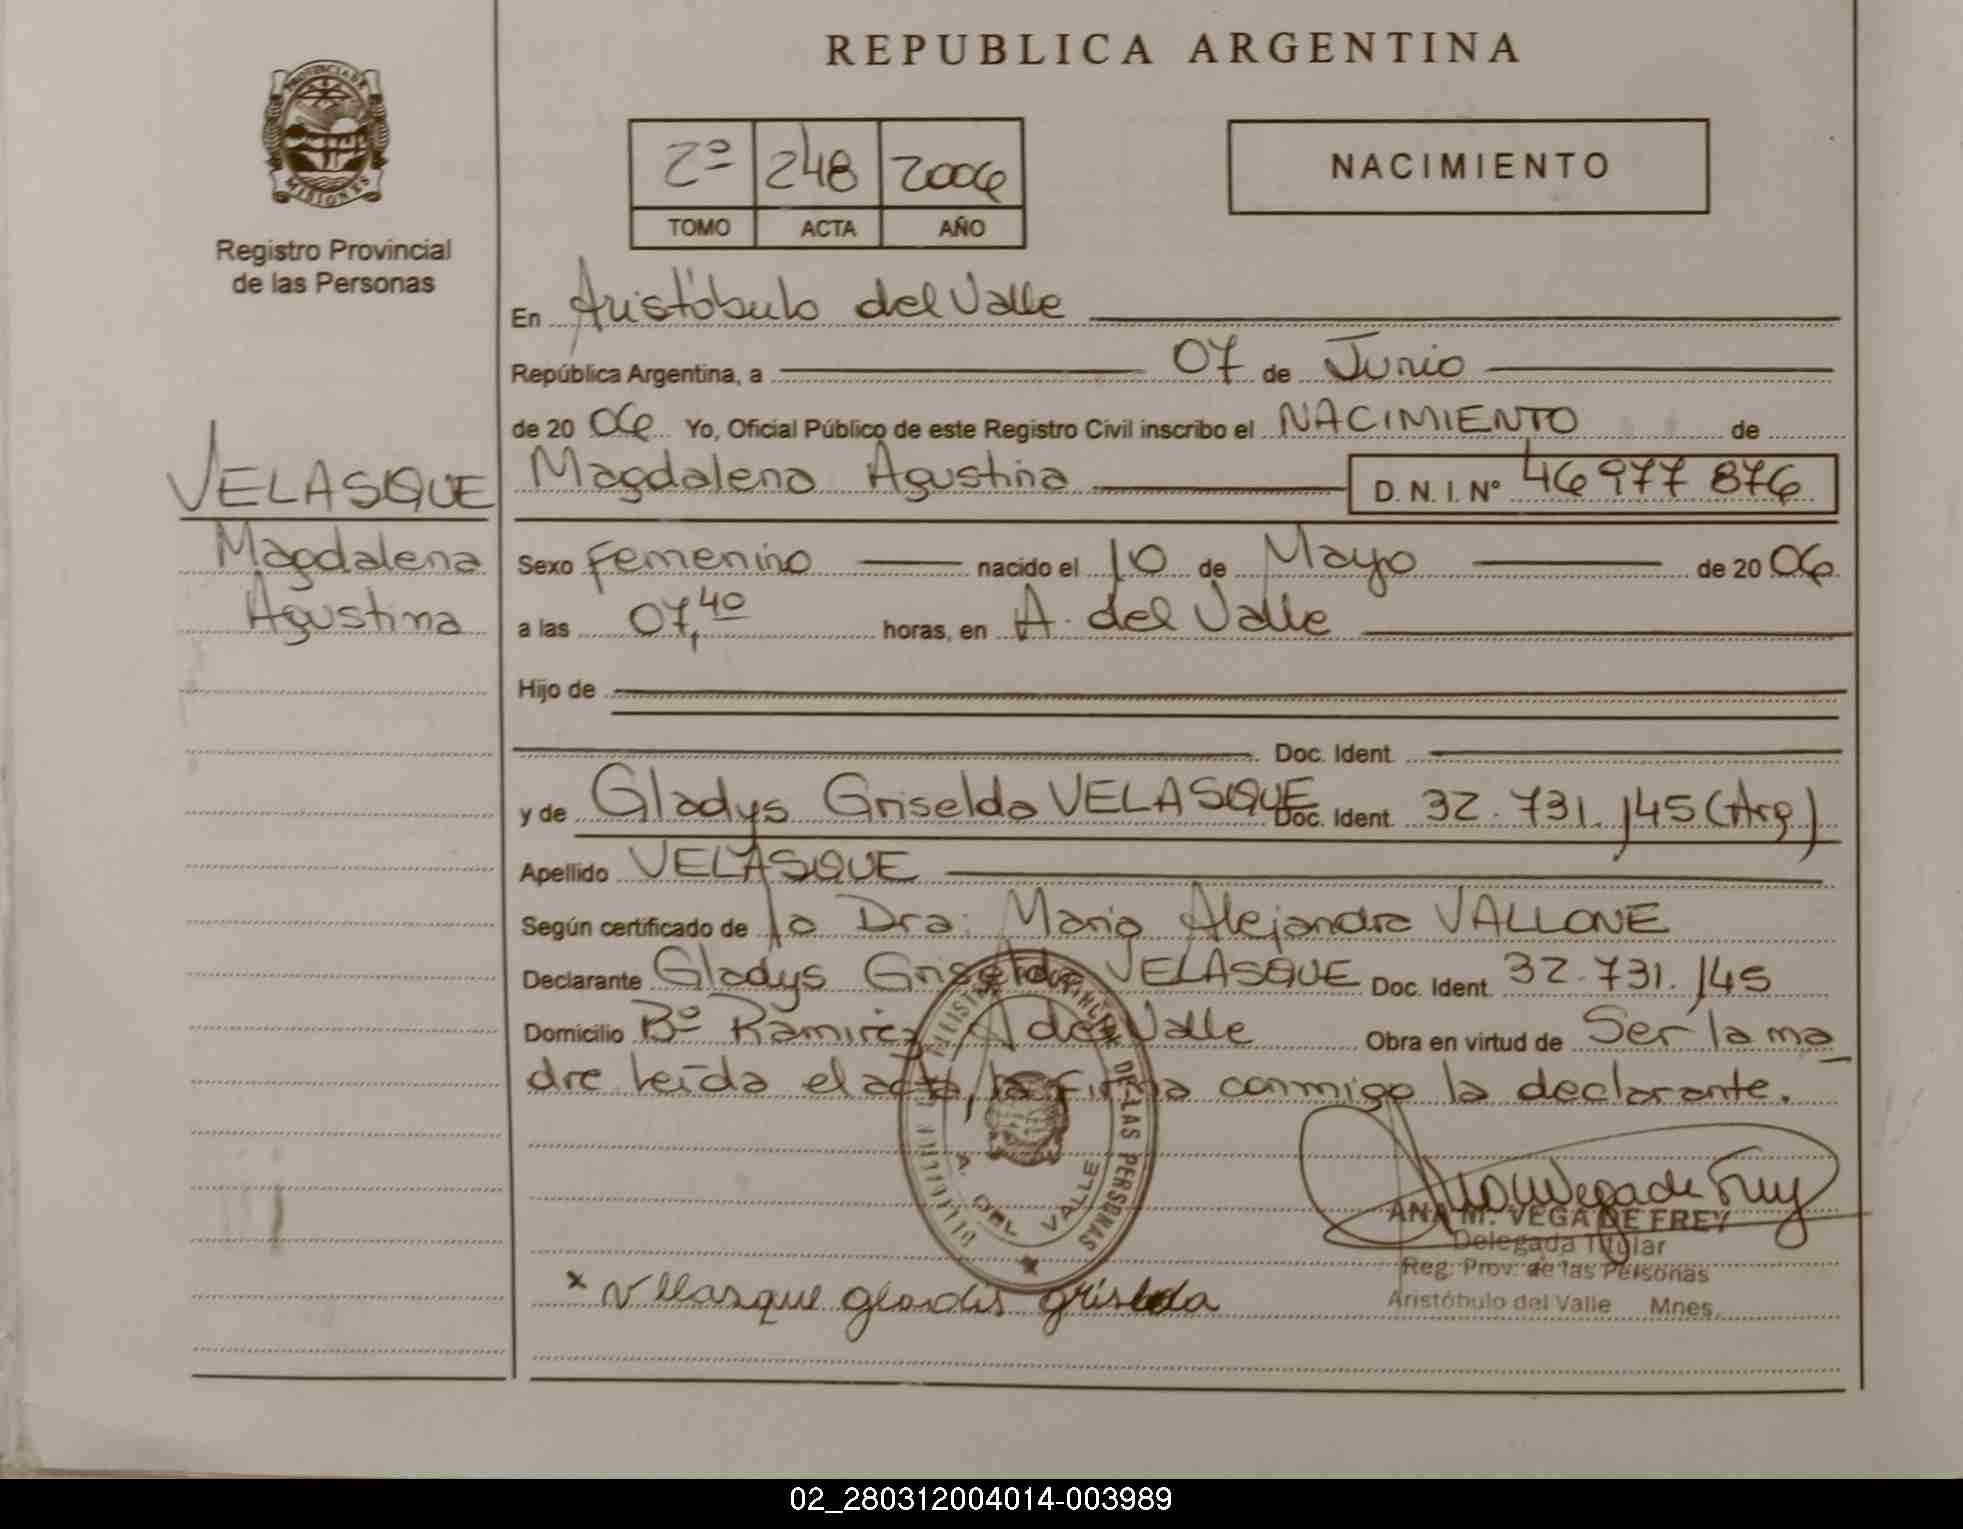 REPUBLICA ARGENTINA
PROVINCIA DE MISIONES
Registro Provincial
de las Personas
2º 248 2006
TOMO ACTA AÑO
NACIMIENTO
En Aristóbulo del Valle
República Argentina, a 07 de Junio
de 20 06 Yo, Oficial Público de este Registro Civil inscribo el NACIMIENTO de
Magdalena Agustina D. N. I. Nº 46 977 876
VELASQUE
Magdalena
Agustina
Sexo Femenino nacido el 10 de Mayo de 20 06
a las 07,40 horas, en A. del Valle
Hijo de
Doc. Ident.
y de Gladys Griselda VELASQUE Doc. Ident. 32.731.145 (Arg)
Apellido VELASQUE
Según certificado de la Dra. Maria Alejandra VALLONE
Declarante Gladys Griselda VELASQUE Doc. Ident. 32.731.145
Domicilio Bº Ramirez A del Valle Obra en virtud de Ser la ma
dre leída el acta, la firma conmigo la declarante.
DE LAS PERSONAS
A. DEL VALLE
Ana M Vega de Frey
ANA M. VEGA DE FREY
Delegada Titular
Reg. Prov. de las Personas
Aristóbulo del Valle Mnes.
x Vellasque gladis griselda
02_280312004014-003989